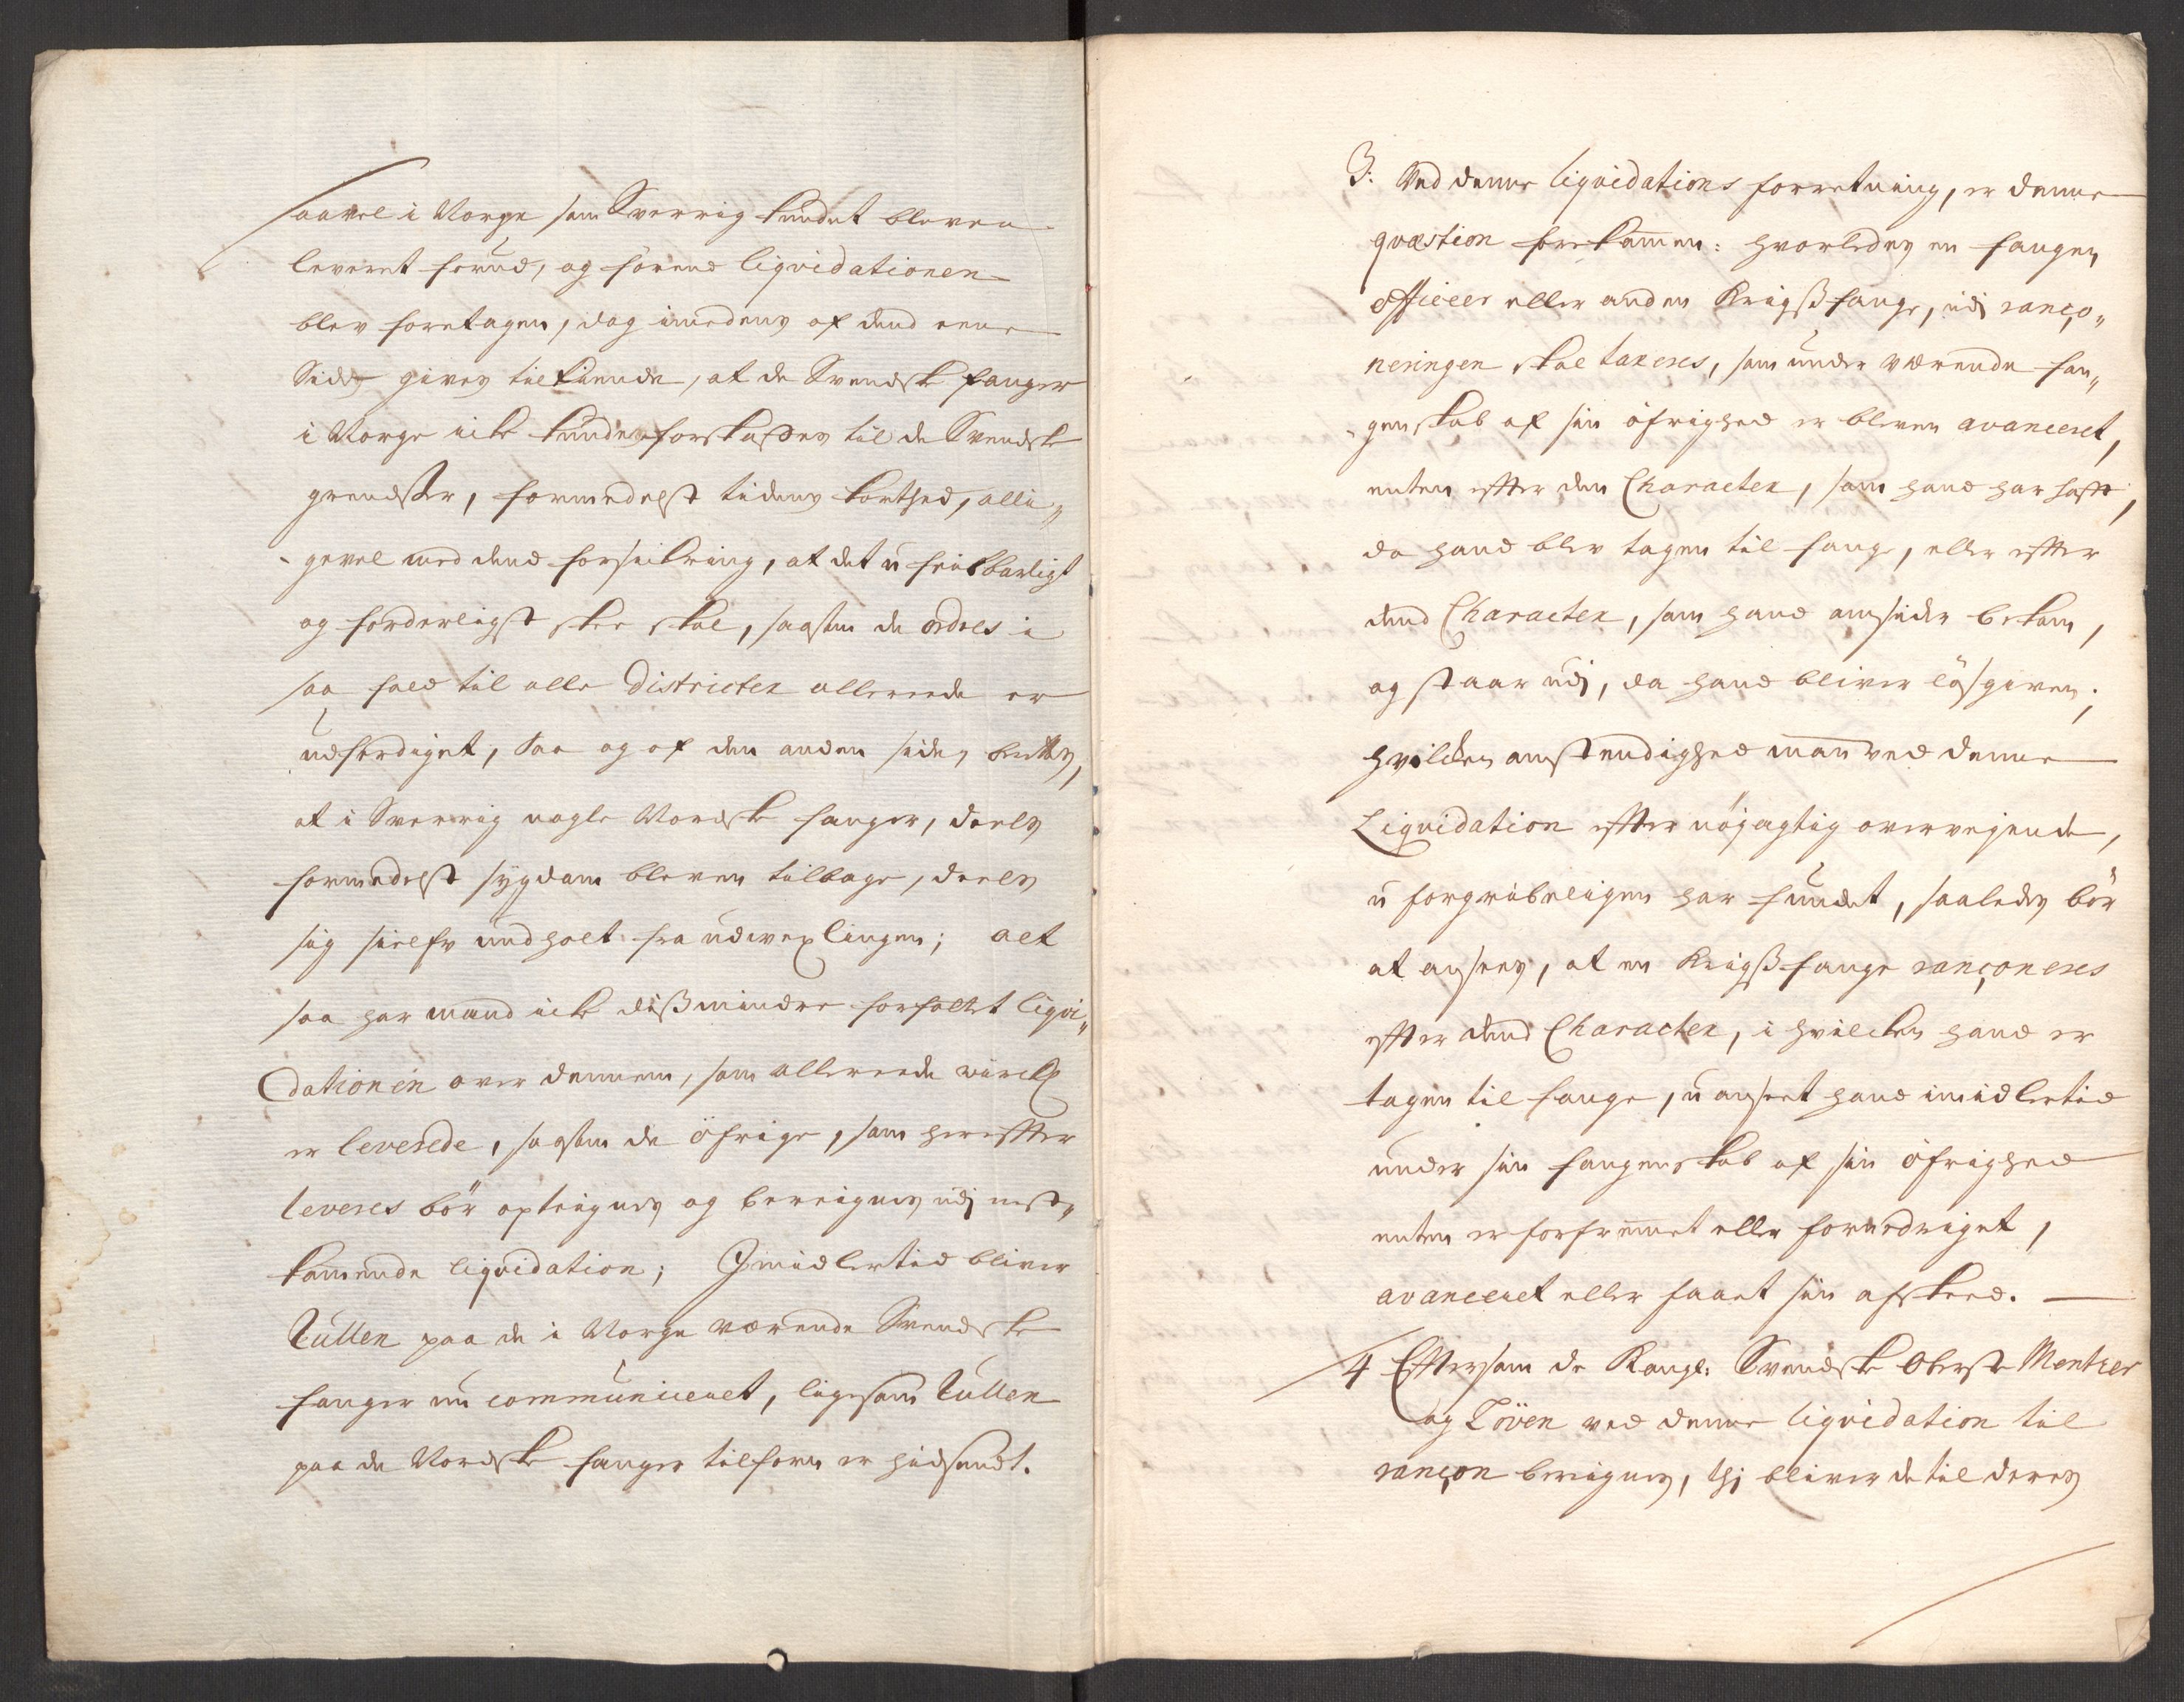 saavel i Norge som Sverrig kundet bleven
leveret forud, og förend liqvidationen
blev foretagen, dog imedens af dend eene
Side gives tilkiende, at de Svendske fanger
i Norge icke kunde forskaffes til de Svendske
grendsser, formedelst tidens korthed, alli„
gevel med dend forsickring, at det ufeilbarligt
og forderligst skee skal, saasom de ordres i
saa fald til alle Districter allereede er
udferdiget, saa og af den anden side,
at i Sverrig nogle Nordske fanger, deels
formedelst sygdom bleven tilbage, deels
sig sielfv undholt fra udvexlingen; alt
saa har mand icke dißmindre forfattet liqvi„
dationen over dennem, som allereede würckl:
er leverede, saasom de öfrige, som herefter
leveres bör opteignes og bereignes udj nest„
kommende liqvidation; Imidlertid bliver
Rullen paa de i Norge værende Svendske
fanger nu communiceret, ligesom Rullen
paa de Nordske fanger tilforn er hidsendt.
3. Ved denne liqvidations forretning, er denne
qvæstion forekommen: hvorledes en fangen
officeer eller anden Krigßfange, udj ranço„
neringen skal taxeres, som under værende fan„
genskab af sin öfrighed er bleven avanceret,
enten efter den Character, som hand har hafft,
da hand blev tagen til fange, eller efter
dend Character, som hand omsider bekom,
og staar udj, da hand bliver lösgiven;
hvilcken omstendighed man ved denne
Liqvidation efter nöjagtig overvejende,
uforgribeligen har fundet, saaledes bör
at ansees, at en Krigßfange rançoneres
efter dend Character, i hvilcken hand er
tagen til fange, uanseet hand imidlertid
under sin fangenskab af sin öfrighed
enten er forfremmet eller fornedriget,
avanceret eller faaet sin afskeed.
4 Eftersom de Kongl: Svendske Oberste Mentzer
og Löven ved denne liqvidation til
rançon bereignes, thj bliver de til deres